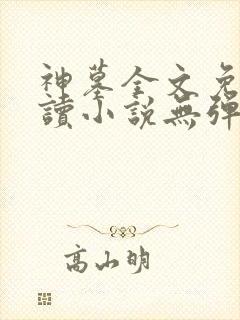 神墓全文免
讀小說無彈
高山明